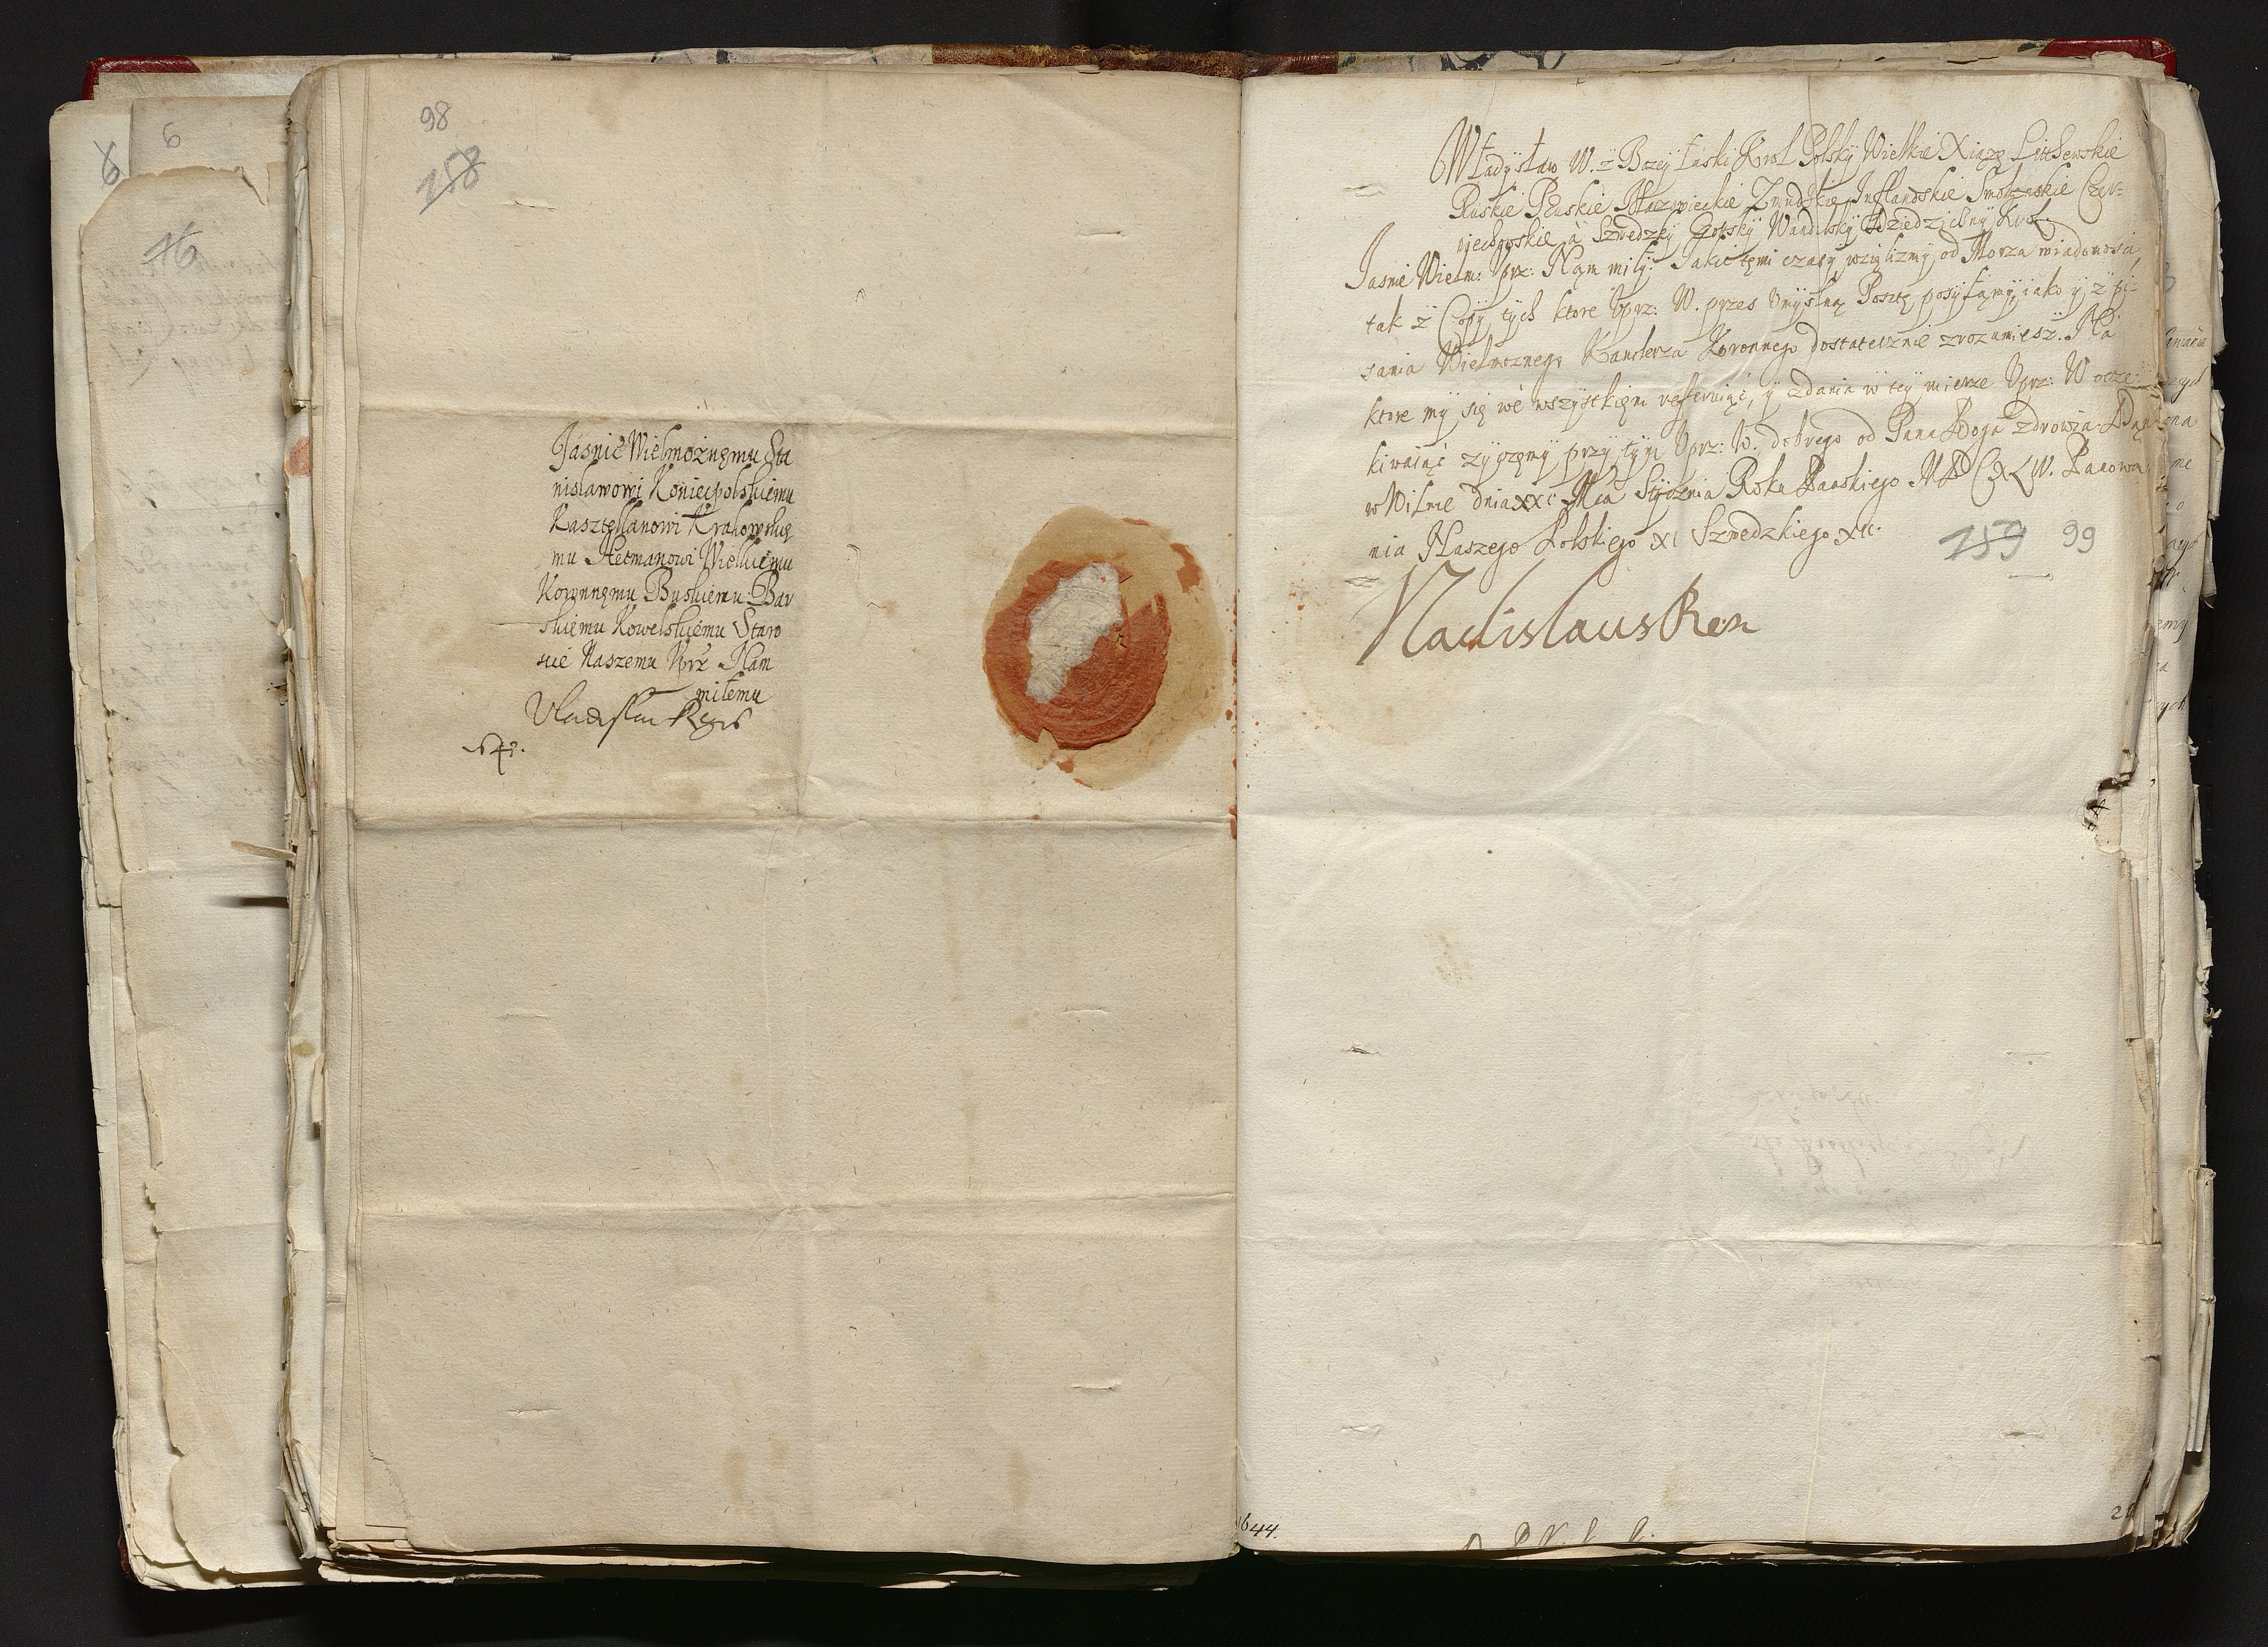 98
158
Jasnie Wielmożnęmu Sta
nislawowi Koniecpolskiemu
Kasztęllanowi Krakowskię
mu Hetmanowi Wielkiemu
Koronnęmu Buskiemu Bar
skięmu Kowelskiemu Staro
scie Naszemu Vprz Nam
miłemu
Uladislai Regis
6
6
16
Władysław IV. z Bożey łaski Krol Polsky Wielkie Xiążę Litthewskie
Ruskie Pruskie Mazowieckie Zmudzkie Inflandskie Smolenskie Czer-
niechowskie a Szwedzky Gotsky Wandalsky Dziedziczny Krol.
Jasnie Wielm: Vprz: Nąm miły: Jakie tęmi czasy wzięlizmy od Morza wiadomosci
tak z Copy tych ktore Vprz: W. przes Vmyslną Posztę posyłąmy, iako y z pi-
sania Wielmoznego Kanclerza Koronnego dostatecznie zrozumiesz. Na
ktore my się we wszystkięm referuiąc, y zdania w tey mierze Vprz: W ocze-
kiwaiąc zyczęmy przy tym Vprz: W. dobrego od Pana Boga zdrowia. Dan
w Wilnie dnia XXI Mca Stycznia Roku Panskiego MDCXLIV. Panowa
nia Naszego Polskiego XI Szwedzkiego XII.
159 99
Vladislaus Rex
1644.